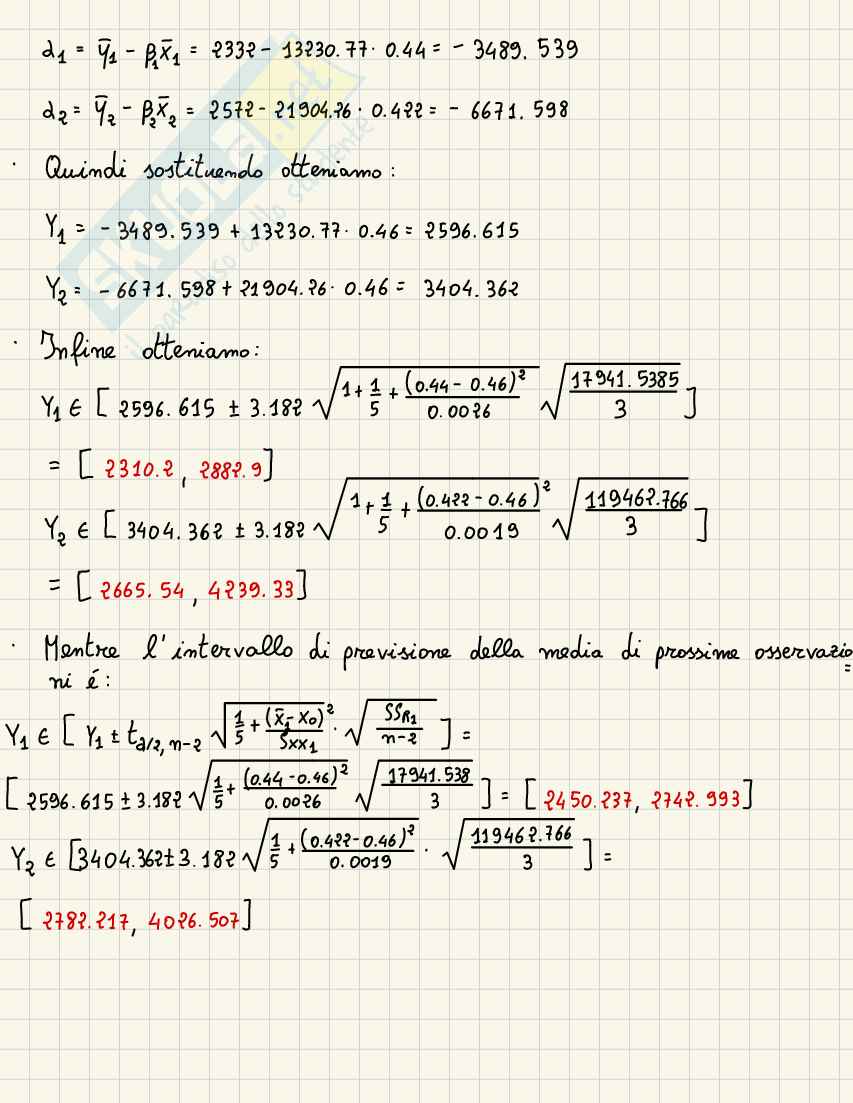 α₁ = ȳ₁ - β₁x̄₁ = 2332 - 13230.77 · 0.44 = - 3489.539
α₂ = ȳ₂ - β₂x̄₂ = 2572 - 21904.26 · 0.422 = - 6671.598
· Quindi sostituendo otteniamo :
Y₁ = - 3489.539 + 13230.77 · 0.46 = 2596.615
Y₂ = - 6671.598 + 21904.26 · 0.46 = 3404.362
· Infine otteniamo :
Y₁ ∈ [ 2596.615 ± 3.182 √(1 + 1/5 + (0.44 - 0.46)²/0.0026) √(17941.5385/3) ]
= [ 2310.2 , 2882.9 ]
Y₂ ∈ [ 3404.362 ± 3.182 √(1 + 1/5 + (0.422 - 0.46)²/0.0019) √(119462.766/3) ]
= [ 2665.54 , 4239.33 ]
· Mentre l'intervallo di previsione della media di prossime osservazio=
ni é :
Y₁ ∈ [ Y₁ ± t_{α/2, n-2} √(1/5 + (x̄₁ - x₀)²/Sxx₁) · √(SS_{R1}/(n-2)) ] =
[ 2596.615 ± 3.182 √(1/5 + (0.44 - 0.46)²/0.0026) √(17941.538/3) ] = [ 2450.237, 2742.993 ]
Y₂ ∈ [ 3404.362 ± 3.182 √(1/5 + (0.422 - 0.46)²/0.0019) · √(119462.766/3) ] =
[ 2782.217, 4026.507 ]
SKUOLA.net
il paradiso dello studente